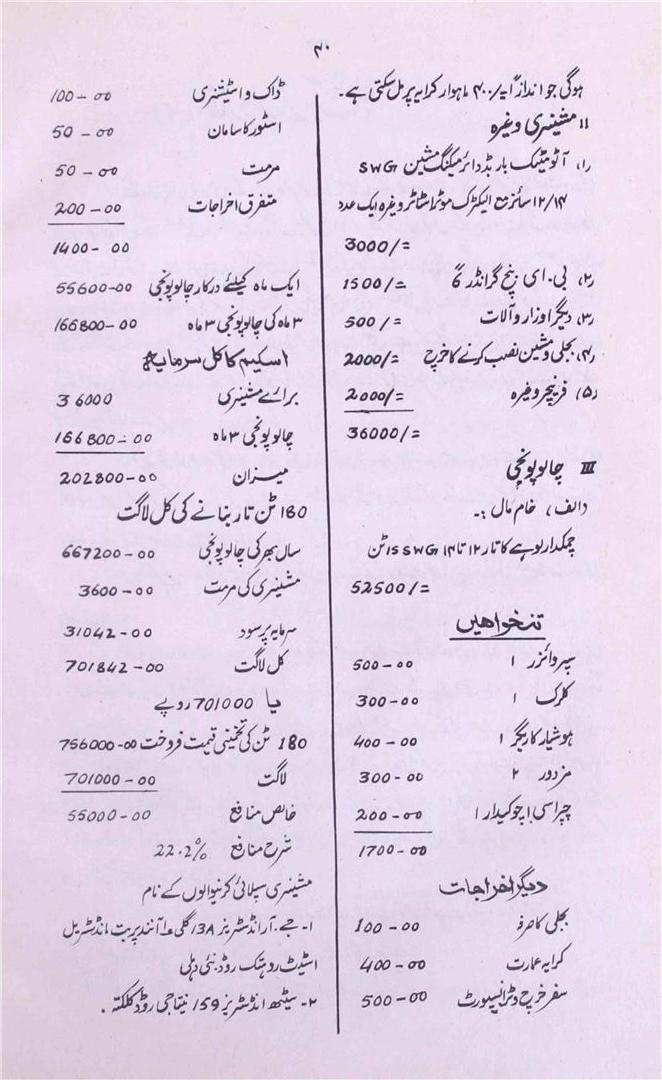 ۴۰
ہوگی جو اندازاً -/۴۰۰ ماہوار کرایہ پر مل سکتی ہے۔
II مشینری وغیرہ
(۱) آٹومیٹک باربڈ وائر میکنگ مشین SWG
۱۲/۱۴ سائز مع الیکٹرک موٹر اسٹارٹر وغیرہ ایک عدد
3000/=
(۲) بی۔ای بنچ گرانڈر 1500/=
(۳) دیگر اوزار و آلات 500/=
(۴) بجلی و مشین نصب کرنے کا خرچ 2000/=
(۵) فرنیچر وغیرہ 2000/=
36000/=
III چالو پونجی
(الف) خام مال :۔
چمکدار لوہے کا تار ۱۲ تا ۱۴ SWG 15 ٹن
52500/=
تنخواہیں
سپروائزر ۱ 500-00
کلرک ۱ 300-00
ہوشیار کاریگر ۱ 400-00
مزدور ۲ 300-00
چپراسی ۱ چوکیدار ۱ 200-00
1700-00
دیگر اخراجات
بجلی کا صرفہ 100-00
کرایہ عمارت 400-00
سفر خرچ و ٹرانسپورٹ 500-00
ڈاک و اسٹیشنری 100-00
اسٹور کا سامان 50-00
مرمت 50-00
متفرق اخراجات 200-00
1400-00
ایک ماہ کیلئے درکار چالو پونجی 55600-00
۳ ماہ کی چالو پونجی ۳ ماہ 166800-00
اسکیم کا کل سرمایہ
برائے مشینری 36000
چالو پونجی ۳ ماہ 166800-00
میزان 202800-00
180 ٹن تار بنانے کی کل لاگت
سال بھر کی چالو پونجی 667200-00
مشینری کی مرمت 3600-00
سرمایہ پر سود 31042-00
کل لاگت 701842-00
یا 701000 روپے
180 ٹن کی تخمینی قیمت فروخت 756000-00
لاگت 701000-00
خالص منافع 55000-00
شرح منافع 22.2%
مشینری سپلائی کرنیوالوں کے نام
۱۔ جے۔آر انڈسٹریز 13A گلی آنند پربت انڈسٹریل
اسٹیٹ روہتک روڈ۔ نئی دہلی
۲۔ سیٹھ انڈسٹریز 159 نیتاجی روڈ کلکتہ۔